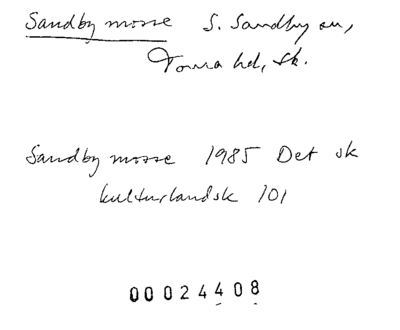 Sandby mosse S. Sandby sn,
Torna hd, Sk.
Sandby mosse 1985 Det sk
kulturlandsk 101
00024408